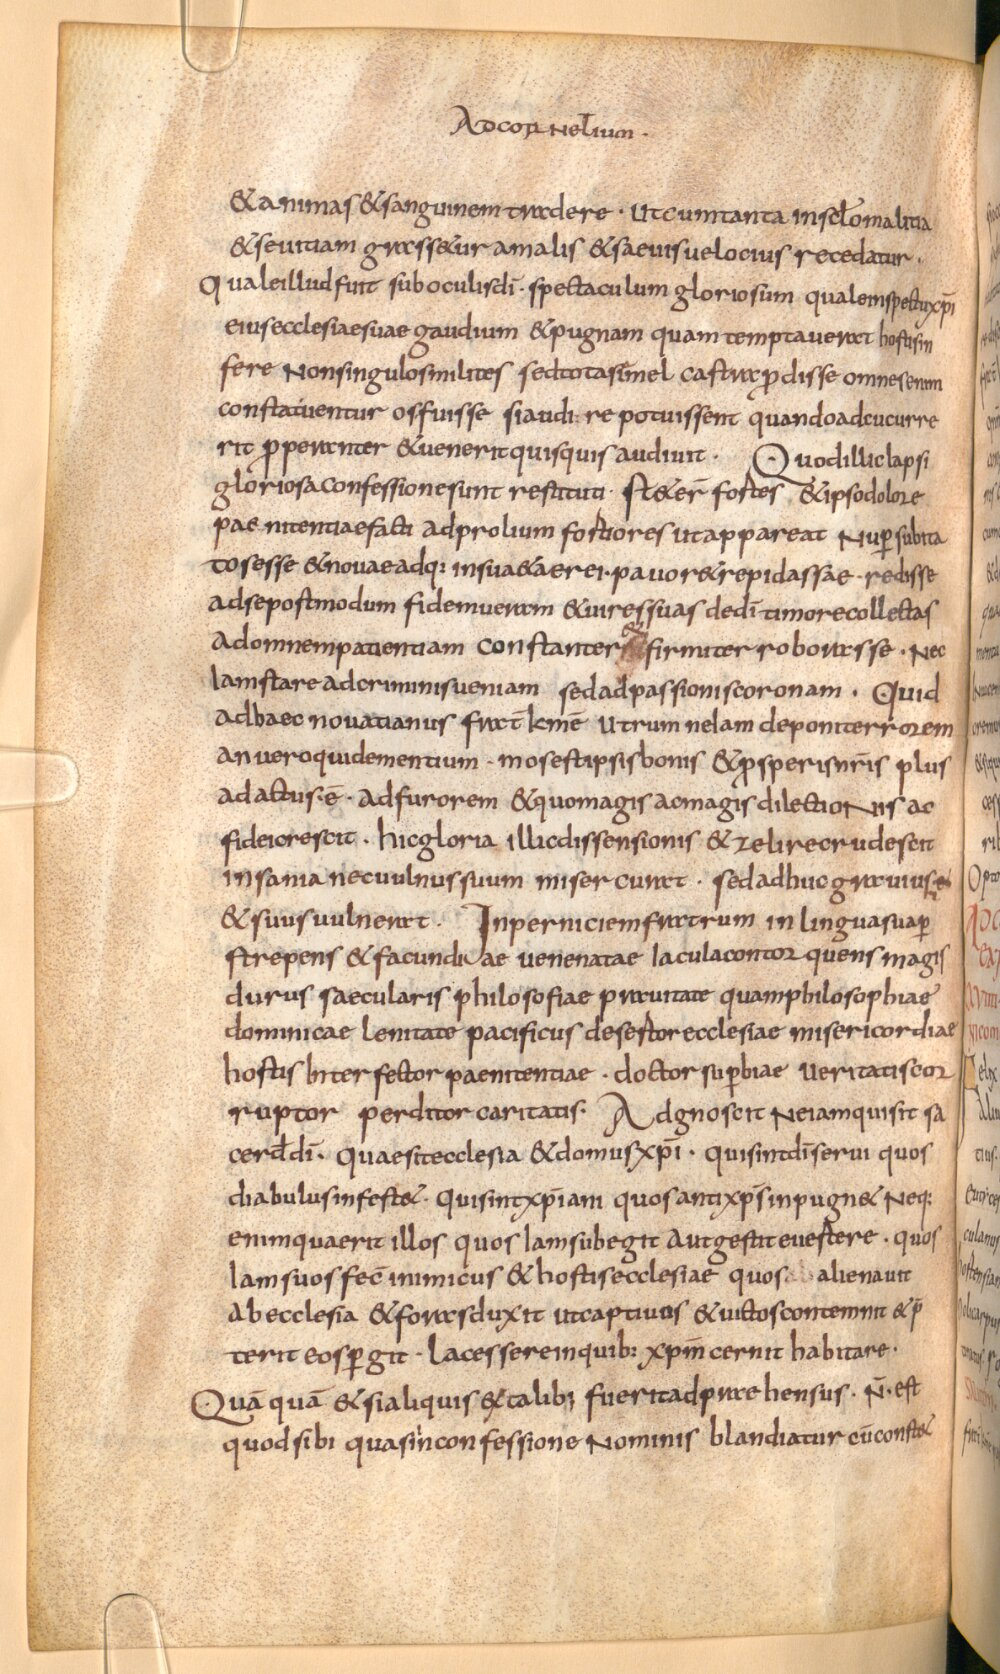 Ad cornelium.
& animas & sanguinem tradere. Ut cum tanta in sclo malitia
& sevitiam grass&ur a malis & saevis velocius recedatur.
Quale illud fuit sub oculis di. spectaculum gloriosum quale in spectu xpi
eius ecclesiae suae gaudium & pugnam quam temptaverat hostis in
fere Non singulos milites sed tota simel castra pdisse omnes enim
constat ventur os fuisse si audi re potuissent quando adcucurre
rit pperanter & venerit quisquis audiuit. Quod illic lapsi
gloriosa confessione sunt restituti. St&er fortes & ipso dolore
paenitentiae facti ad prolium fortiores ut appareat Nup subita
tos esse & novae adq: insu&ae rei. pavor &repidassae. redisse
ad se postmodum fidem veram & vires suas de di timore collectas
ad omnem patientiam constanter firmiter roborasse. Nec
iam stare ad criminis veniam sed ad passionis coronam. Quid
ad haec novatianus frat kme Utrum nelam deponit errorem
an vero qui dementium. mos est ipsis bonis & psperis nris plus
adactus. e. ad furorem & quo magis ac magis dilectioNis ac
fidei crescit. hic gloria illic dissensionis & zeli recrudescit
insania nec vulnus suum miser curat. sed adhuc gravius
& suus vulnerat. In perniciem fratrum in lingua sua p
strepens & facundi ae venenatae iacula contor quens magis
durus saecularis philosofiae pravitate quam philosophiae
dominicae lenitate pacificus desertor ecclesiae misericordiae
hostis inter fector paenitentiae. doctor supbiae Veritatis cor
ruptor perditor caritatis. Adgnoscit Ne iam qui sit sa
cerd di. quae sit ecclesia & domus xpi. qui sint di servi quos
diabulus infest&. qui sint xpiani quos anti xps inpugn& Neq:
enim quaerit illos quos iam subegit aut gestit evertere. quos
iam suos fec inimicus & hostis ecclesiae quos alienavit
ab ecclesia & foras duxit ut captivos & victos contemnit & p
terit eos pgit. lacessere in quib: xpm cernit habitare.
Quā quā & si aliquis & talib; fuerit adprae hensus. N. est
quod sibi quasi in confessione Nominis blandiatur cū const&